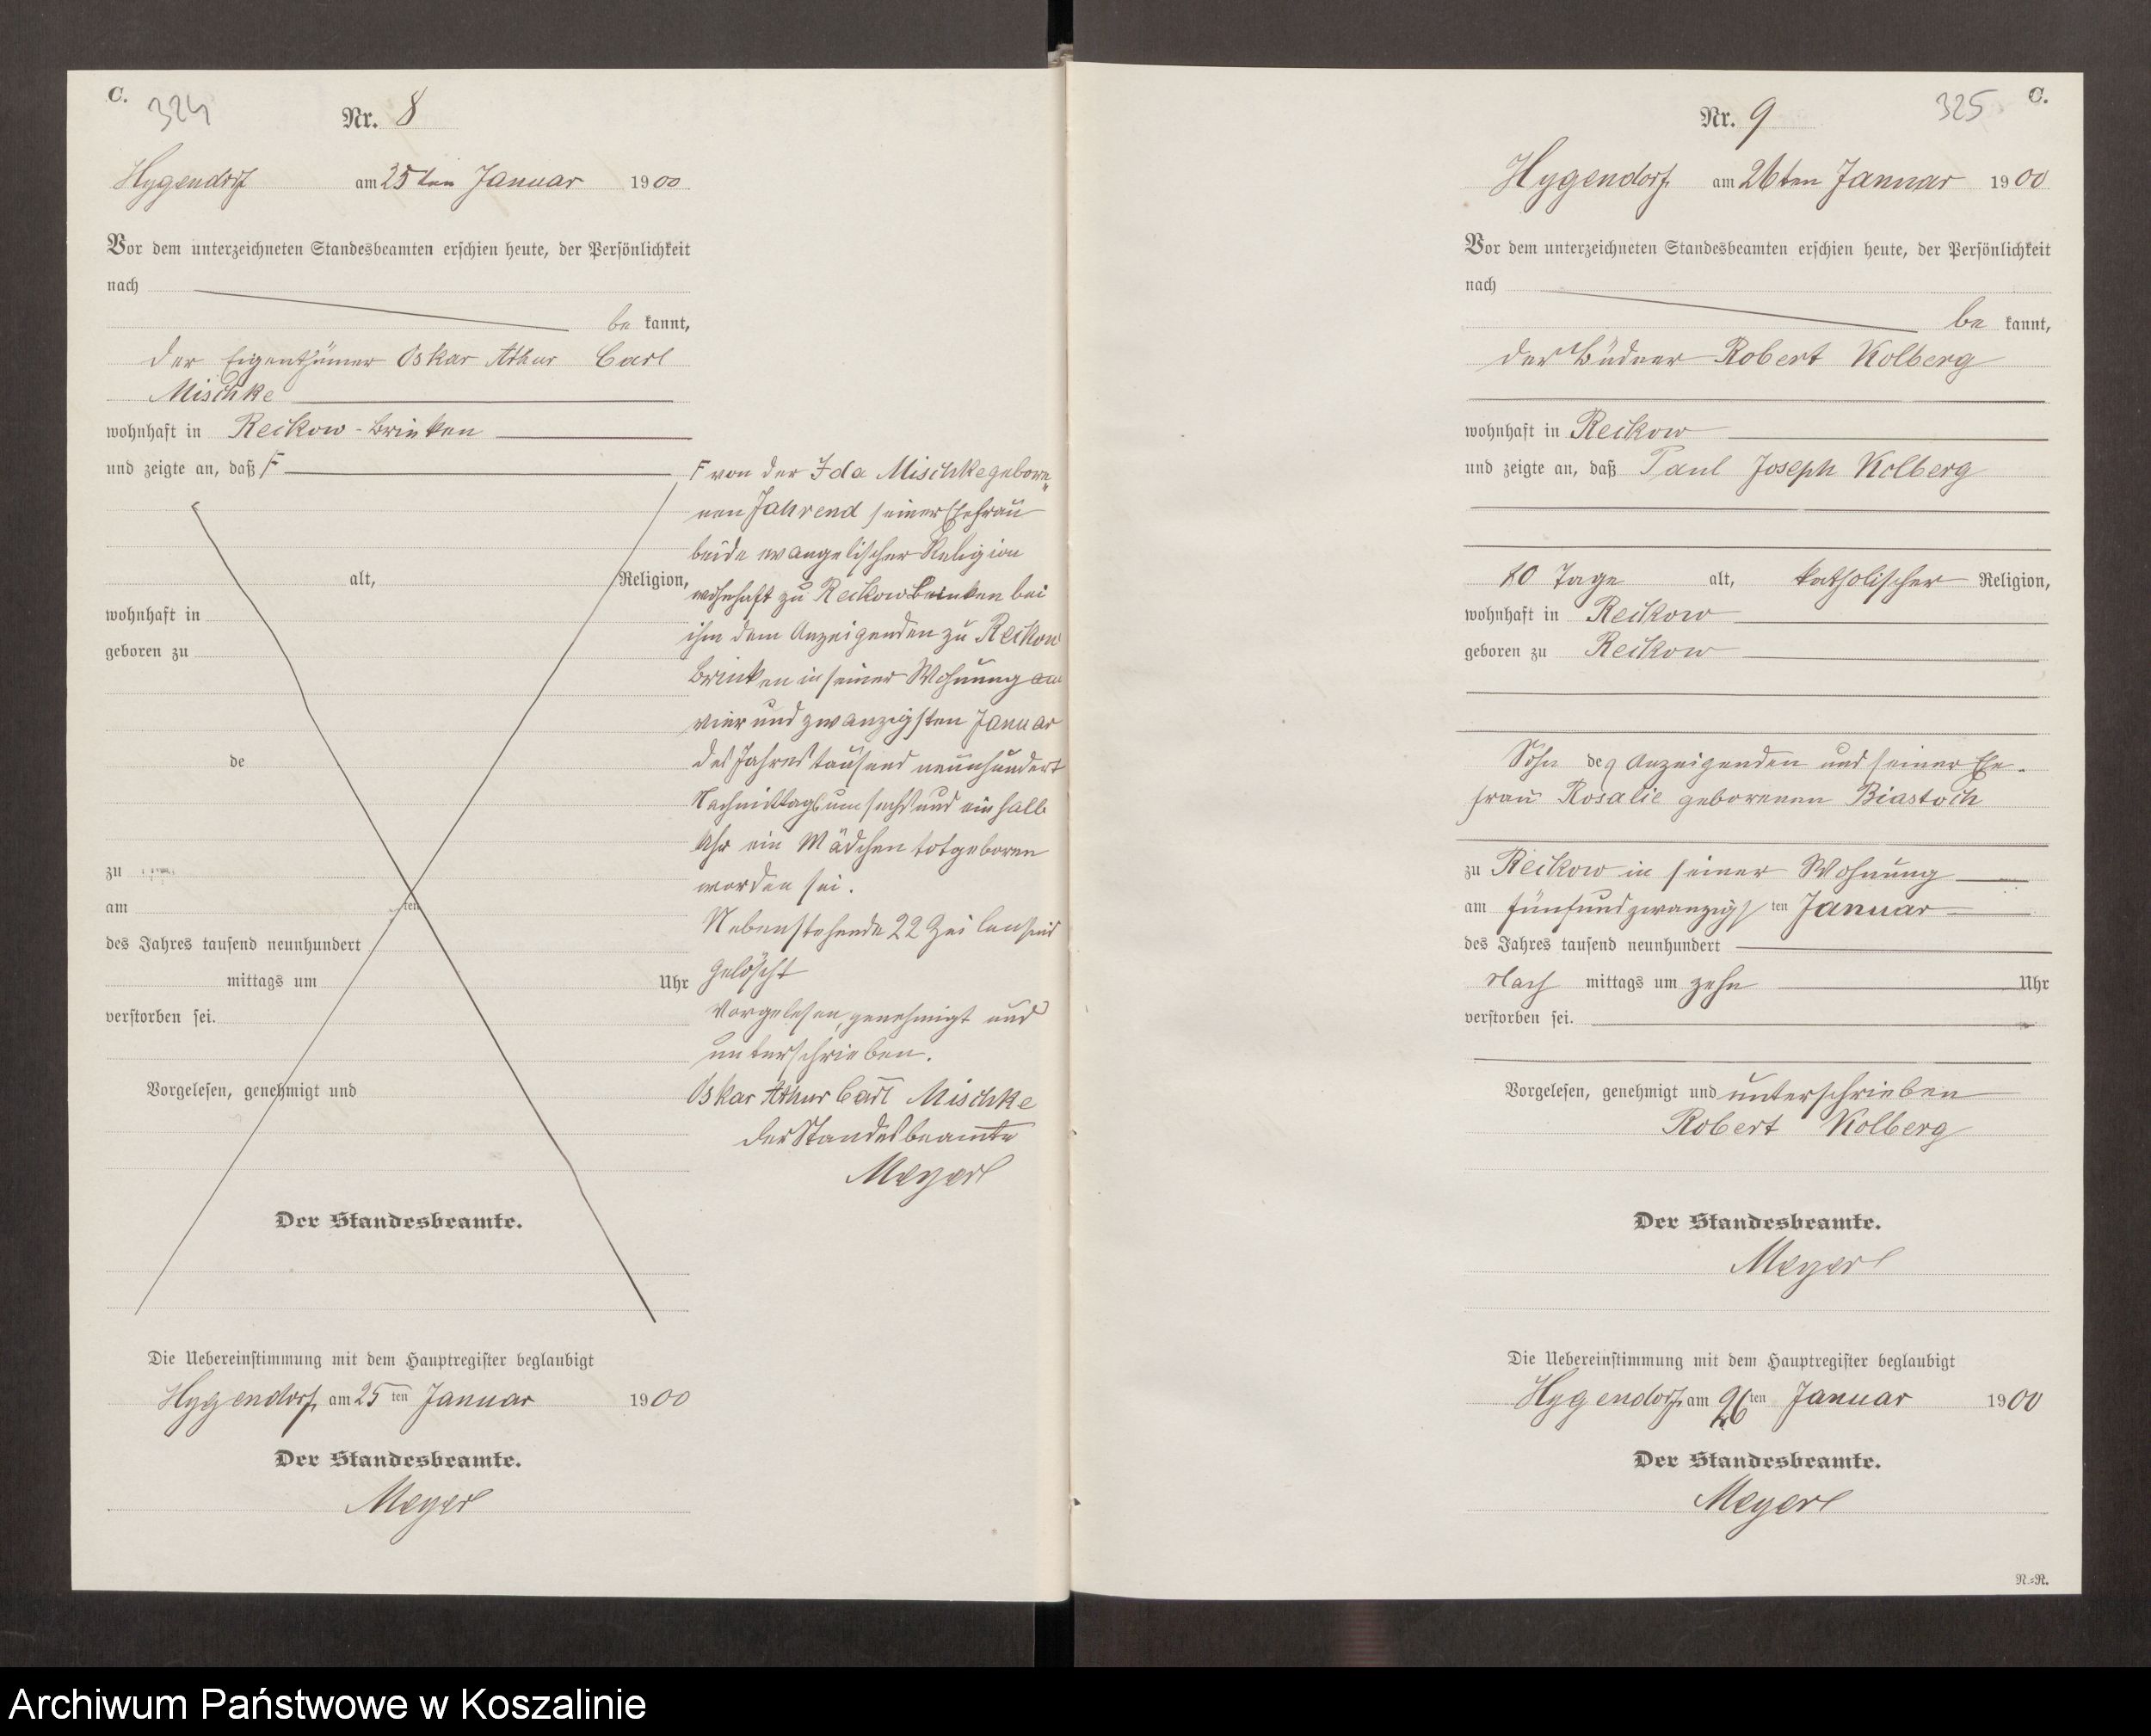 C.
324
Nr. 8
Hygendorf am 25ten Januar 1900
Vor dem unterzeichneten Standesbeamten erschien heute, der Persönlichkeit
nach
be kannt,
der Eigenthümer Oskar Athur Carl
Mischke
wohnhaft in Reckow-Brinken
und zeigte an, daß F
alt, Religion,
wohnhaft in
geboren zu
de
zu
am ten
des Jahres tausend neunhundert
mittags um Uhr
verstorben sei.
Vorgelesen, genehmigt und
Der Standesbeamte.
F von der Ida Mischke gebore„
nen Jahrend seiner Ehefrau
beide evangelischer Religion
wohnhaft zu Reckow Brinken bei
ihm dem Anzeigenden zu Reckow
Brinken in seiner Wohnung am
vier und zwanzigsten Januar
des Jahres tausend neunhundert
Nachmittags um sechs und ein halb
Uhr ein Mädchen totgeboren
worden sei.
Nebenstehende 22 Zeilen sind
gelöscht
Vorgelesen, genehmigt und
unterschrieben.
Oskar Athur Carl Mischke
der Standesbeamte
Meyer
Die Uebereinstimmung mit dem Hauptregister beglaubigt
Hygendorf, am 25 ten Januar 1900
Der Standesbeamte.
Meyer
325
C.
Nr. 9
Hygendorf am 26ten Januar 1900
Vor dem unterzeichneten Standesbeamten erschien heute, der Persönlichkeit
nach
be kannt,
der Büdner Robert Kolberg
wohnhaft in Reckow
und zeigte an, daß Paul Joseph Kolberg
10 Tage alt, katholischer Religion,
wohnhaft in Reckow
geboren zu Reckow
Sohn des Anzeigenden und seiner Ehe-
frau Rosalie geborenen Biastoch
zu Reckow in seiner Wohnung
am fünfundzwanzigs ten Januar
des Jahres tausend neunhundert
Nach mittags um zehn Uhr
verstorben sei.
Vorgelesen, genehmigt und unterschrieben
Robert Kolberg
Der Standesbeamte.
Meyer
Die Uebereinstimmung mit dem Hauptregister beglaubigt
Hygendorf, am 26 ten Januar 1900
Der Standesbeamte.
Meyer
N.-R.
Archiwum Państwowe w Koszalinie